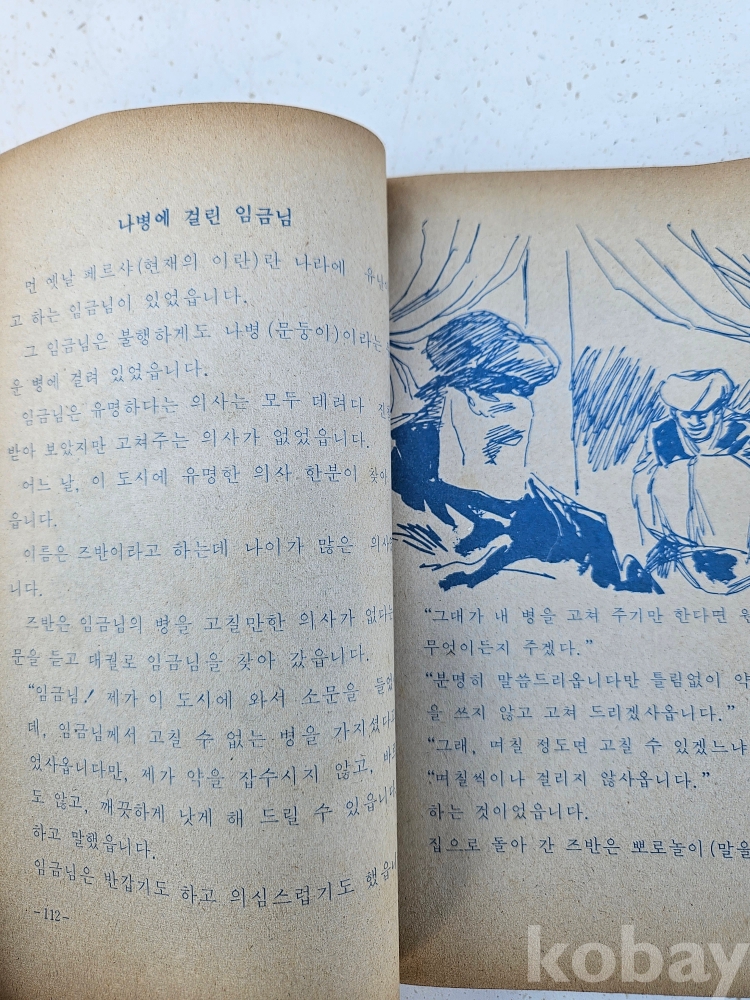 나병에 걸린 임금님
먼 옛날 페르샤(현재의 이란)란 나라에
고 하는 임금님이 있었읍니다.
그 임금님은 불행하게도 나병(문둥이)이라는
운 병에 걸려 있었읍니다.
임금님은 유명하다는 의사는 모두 데려다
받아 보았지만 고쳐주는 의사가 없었읍니다.
어느 날, 이 도시에 유명한 의사 한분이 찾아
읍니다.
이름은 즈반이라고 하는데 나이가 많은 의사
니다.
즈반은 임금님의 병을 고칠만한 의사가 없다는
문을 듣고 대궐로 임금님을 찾아 갔읍니다.
“임금님! 제가 이 도시에 와서 소문을 들었
데, 임금님께서 고칠 수 없는 병을 가지셨다고
었사옵니다만, 제가 약을 잡수시지 않고, 바르
도 않고, 깨끗하게 낫게 해 드릴 수 있읍니다
하고 말했읍니다.
임금님은 반갑기도 하고 의심스럽기도 했읍니
-112-
“그대가 내 병을 고쳐 주기만 한다면
무엇이든지 주겠다.”
“분명히 말씀드리옵니다만 틀림없이 약
을 쓰지 않고 고쳐 드리겠사옵니다.”
“그래, 며칠 정도면 고칠 수 있겠느냐
“며칠씩이나 걸리지 않사옵니다.”
하는 것이었읍니다.
집으로 돌아 간 즈반은 뽀로놀이(말을
kobay